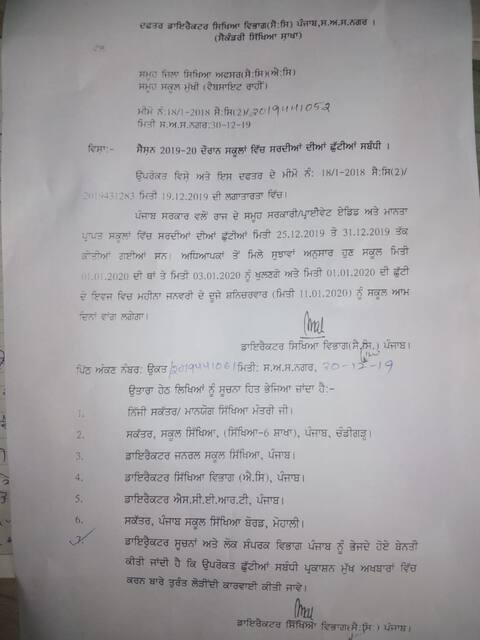 ਦਫਤਰ ਡਾਇਰੈਕਟਰ ਸਿੱਖਿਆ ਵਿਭਾਗ(ਸੈ:ਸਿ) ਪੰਜਾਬ,ਸ.ਅ.ਸ.ਨਗਰ ।
(ਸੈਕੰਡਰੀ ਸਿੱਖਿਆ ਸ਼ਾਖਾ)
ਸਮੂਹ ਜਿਲਾ ਸਿੱਖਿਆ ਅਫਸਰ(ਸੈ:ਸਿ)(ਐ:ਸਿ)
ਸਮੂਹ ਸਕੂਲ ਮੁੱਖੀ (ਵੈਬਸਾਇਟ ਰਾਹੀਂ)
ਮੀਮੋ ਨੰ:18/1-2018 ਸੈ:ਸਿ(2)/2019441052
ਮਿਤੀ ਸ.ਅ.ਸ.ਨਗਰ:30-12-19
ਵਿਸ਼ਾ:- ਸੈਸ਼ਨ 2019-20 ਦੌਰਾਨ ਸਕੂਲਾਂ ਵਿੱਚ ਸਰਦੀਆਂ ਦੀਆਂ ਛੁੱਟੀਆਂ ਸਬੰਧੀ ।
ਉਪਰੋਕਤ ਵਿਸ਼ੇ ਅਤੇ ਇਸ ਦਫਤਰ ਦੇ ਮੀਮੋ ਨੰ: 18/1-2018 ਸੈ:ਸਿ(2)/
2019431283 ਮਿਤੀ 19.12.2019 ਦੀ ਲਗਾਤਾਰਤਾ ਵਿੱਚ।
ਪੰਜਾਬ ਸਰਕਾਰ ਵਲੋਂ ਰਾਜ ਦੇ ਸਮੂਹ ਸਰਕਾਰੀ/ਪ੍ਰਾਈਵੇਟ ਏਡਿਡ ਅਤੇ ਮਾਨਤਾ
ਪ੍ਰਾਪਤ ਸਕੂਲਾਂ ਵਿੱਚ ਸਰਦੀਆਂ ਦੀਆਂ ਛੁੱਟੀਆਂ ਮਿਤੀ 25.12.2019 ਤੋਂ 31.12.2019 ਤੱਕ
ਕੀਤੀਆਂ ਗਈਆਂ ਸਨ। ਅਧਿਆਪਕਾਂ ਤੋਂ ਮਿਲੇ ਸੁਝਾਵਾਂ ਅਨੁਸਾਰ ਹੁਣ ਸਕੂਲ ਮਿਤੀ
01.01.2020 ਦੀ ਥਾਂ ਤੇ ਮਿਤੀ 03.01.2020 ਨੂੰ ਖੁਲਣਗੇ ਅਤੇ ਮਿਤੀ 01.01.2020 ਦੀ ਛੁੱਟੀ
ਦੇ ਇਵਜ ਵਿਚ ਮਹੀਨਾ ਜਨਵਰੀ ਦੇ ਦੂਜੇ ਸ਼ਨਿਚਰਵਾਰ (ਮਿਤੀ 11.01.2020) ਨੂੰ ਸਕੂਲ ਆਮ
ਦਿਨਾਂ ਵਾਂਗ ਲਗੇਗਾ।
ਡਾਇਰੈਕਟਰ ਸਿੱਖਿਆ ਵਿਭਾਗ(ਸੈ.ਸਿ.) ਪੰਜਾਬ।
ਪਿੱਠ ਅੰਕਣ ਨੰਬਰ: ਉਕਤ /2019441061 ਮਿਤੀ: ਸ.ਅ.ਸ.ਨਗਰ, 30-12-19
ਉਤਾਰਾ ਹੇਠ ਲਿਖਿਆਂ ਨੂੰ ਸੂਚਨਾ ਹਿਤ ਭੇਜਿਆ ਜਾਂਦਾ ਹੈ:-
1. ਨਿੱਜੀ ਸਕੱਤਰ/ ਮਾਨਯੋਗ ਸਿੱਖਿਆ ਮੰਤਰੀ ਜੀ।
2. ਸਕੱਤਰ, ਸਕੂਲ ਸਿੱਖਿਆ, (ਸਿੱਖਿਆ-6 ਸ਼ਾਖਾ), ਪੰਜਾਬ, ਚੰਡੀਗੜ੍ਹ।
3. ਡਾਇਰੈਕਟਰ ਜਨਰਲ ਸਕੂਲ ਸਿੱਖਿਆ, ਪੰਜਾਬ।
4. ਡਾਇਰੈਕਟਰ ਸਿੱਖਿਆ ਵਿਭਾਗ (ਐ.ਸਿ), ਪੰਜਾਬ।
5. ਡਾਇਰੈਕਟਰ ਐਸ.ਸੀ.ਈ.ਆਰ.ਟੀ, ਪੰਜਾਬ।
6. ਸਕੱਤਰ, ਪੰਜਾਬ ਸਕੂਲ ਸਿੱਖਿਆ ਬੋਰਡ, ਮੋਹਾਲੀ।
7. ਡਾਇਰੈਕਟਰ ਸੂਚਨਾਂ ਅਤੇ ਲੋਕ ਸੰਪਰਕ ਵਿਭਾਗ ਪੰਜਾਬ ਨੂੰ ਭੇਜਦੇ ਹੋਏ ਬੇਨਤੀ
ਕੀਤੀ ਜਾਂਦੀ ਹੈ ਕਿ ਉਪਰੋਕਤ ਛੁੱਟੀਆਂ ਸਬੰਧੀ ਪ੍ਰਕਾਸ਼ਨ ਮੁੱਖ ਅਖਬਾਰਾਂ ਵਿੱਚ
ਕਰਨ ਬਾਰੇ ਤੁਰੰਤ ਲੋੜੀਂਦੀ ਕਾਰਵਾਈ ਕੀਤੀ ਜਾਵੇ।
ਡਾਇਰੈਕਟਰ ਸਿੱਖਿਆ ਵਿਭਾਗ(ਸੈ:ਸਿ.) ਪੰਜਾਬ।